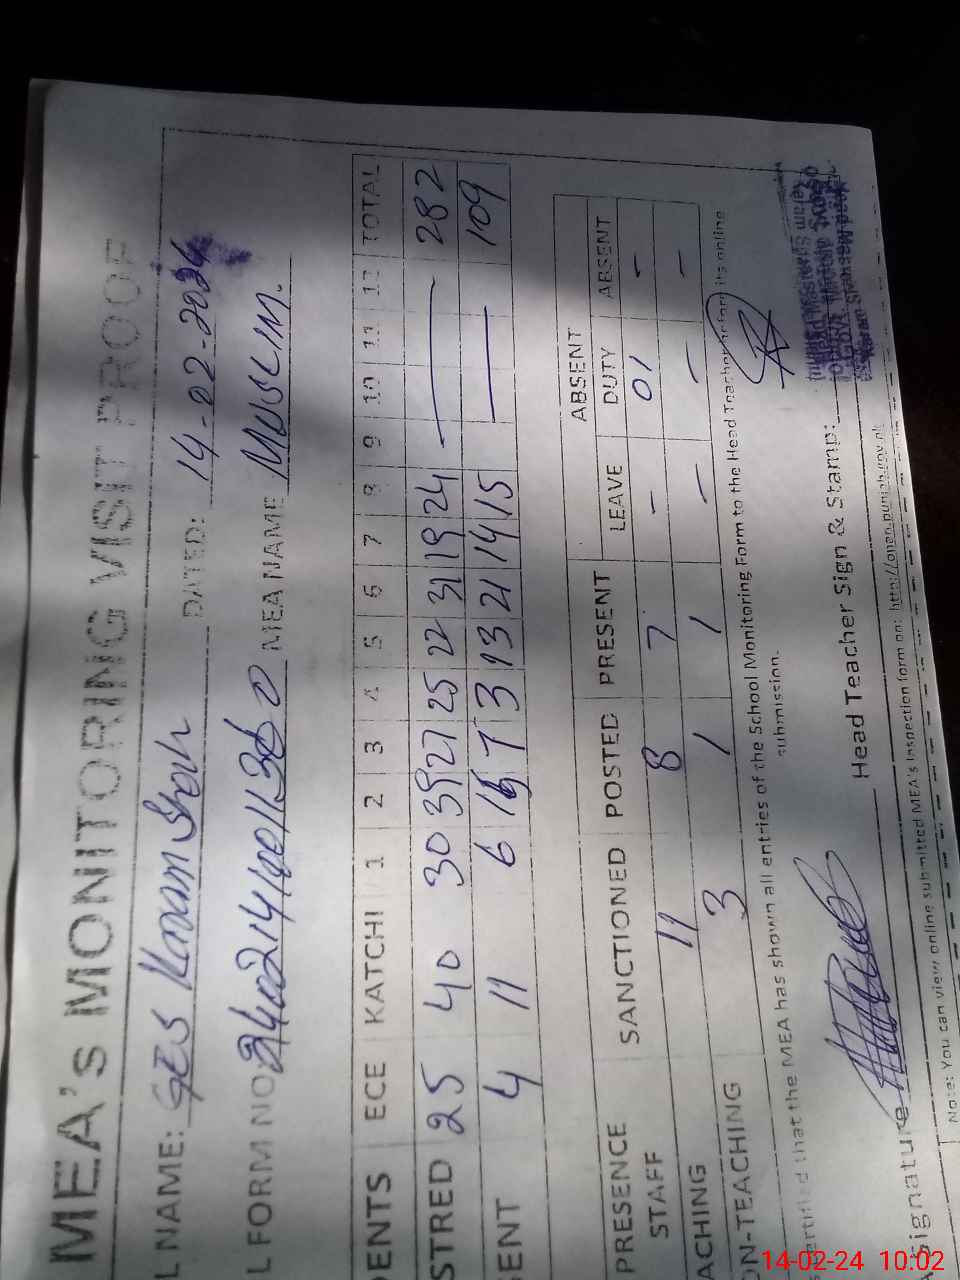 MEA's MONITORING VISIT PROOF
L NAME: GES Karam Shah DATED: 14-02-2024
L FORM NO: MEA NAME MUSLIM.
DENTS ECE KATCHI 1 2 3 4 5 6 7 8 9 10 11 12 TOTAL
STRED 25 40 30 39 27 25 22 31 19 24 — 282
SENT 4 11 6 7 3 13 21 14 15 — 109
PRESENCE SANCTIONED POSTED PRESENT ABSENT
STAFF LEAVE DUTY ABSENT
ACHING 11 8 7 - 01 -
ON-TEACHING 3 1 1 - - -
ertified that the MEA has shown all entries of the School Monitoring Form to the Head Teacher for its online
submission.
Signature Head Teacher Sign & Stamp:
Note: You can view online submitted MEA's inspection form on: http://open.punjab.gov.pk
14-02-24 10:02